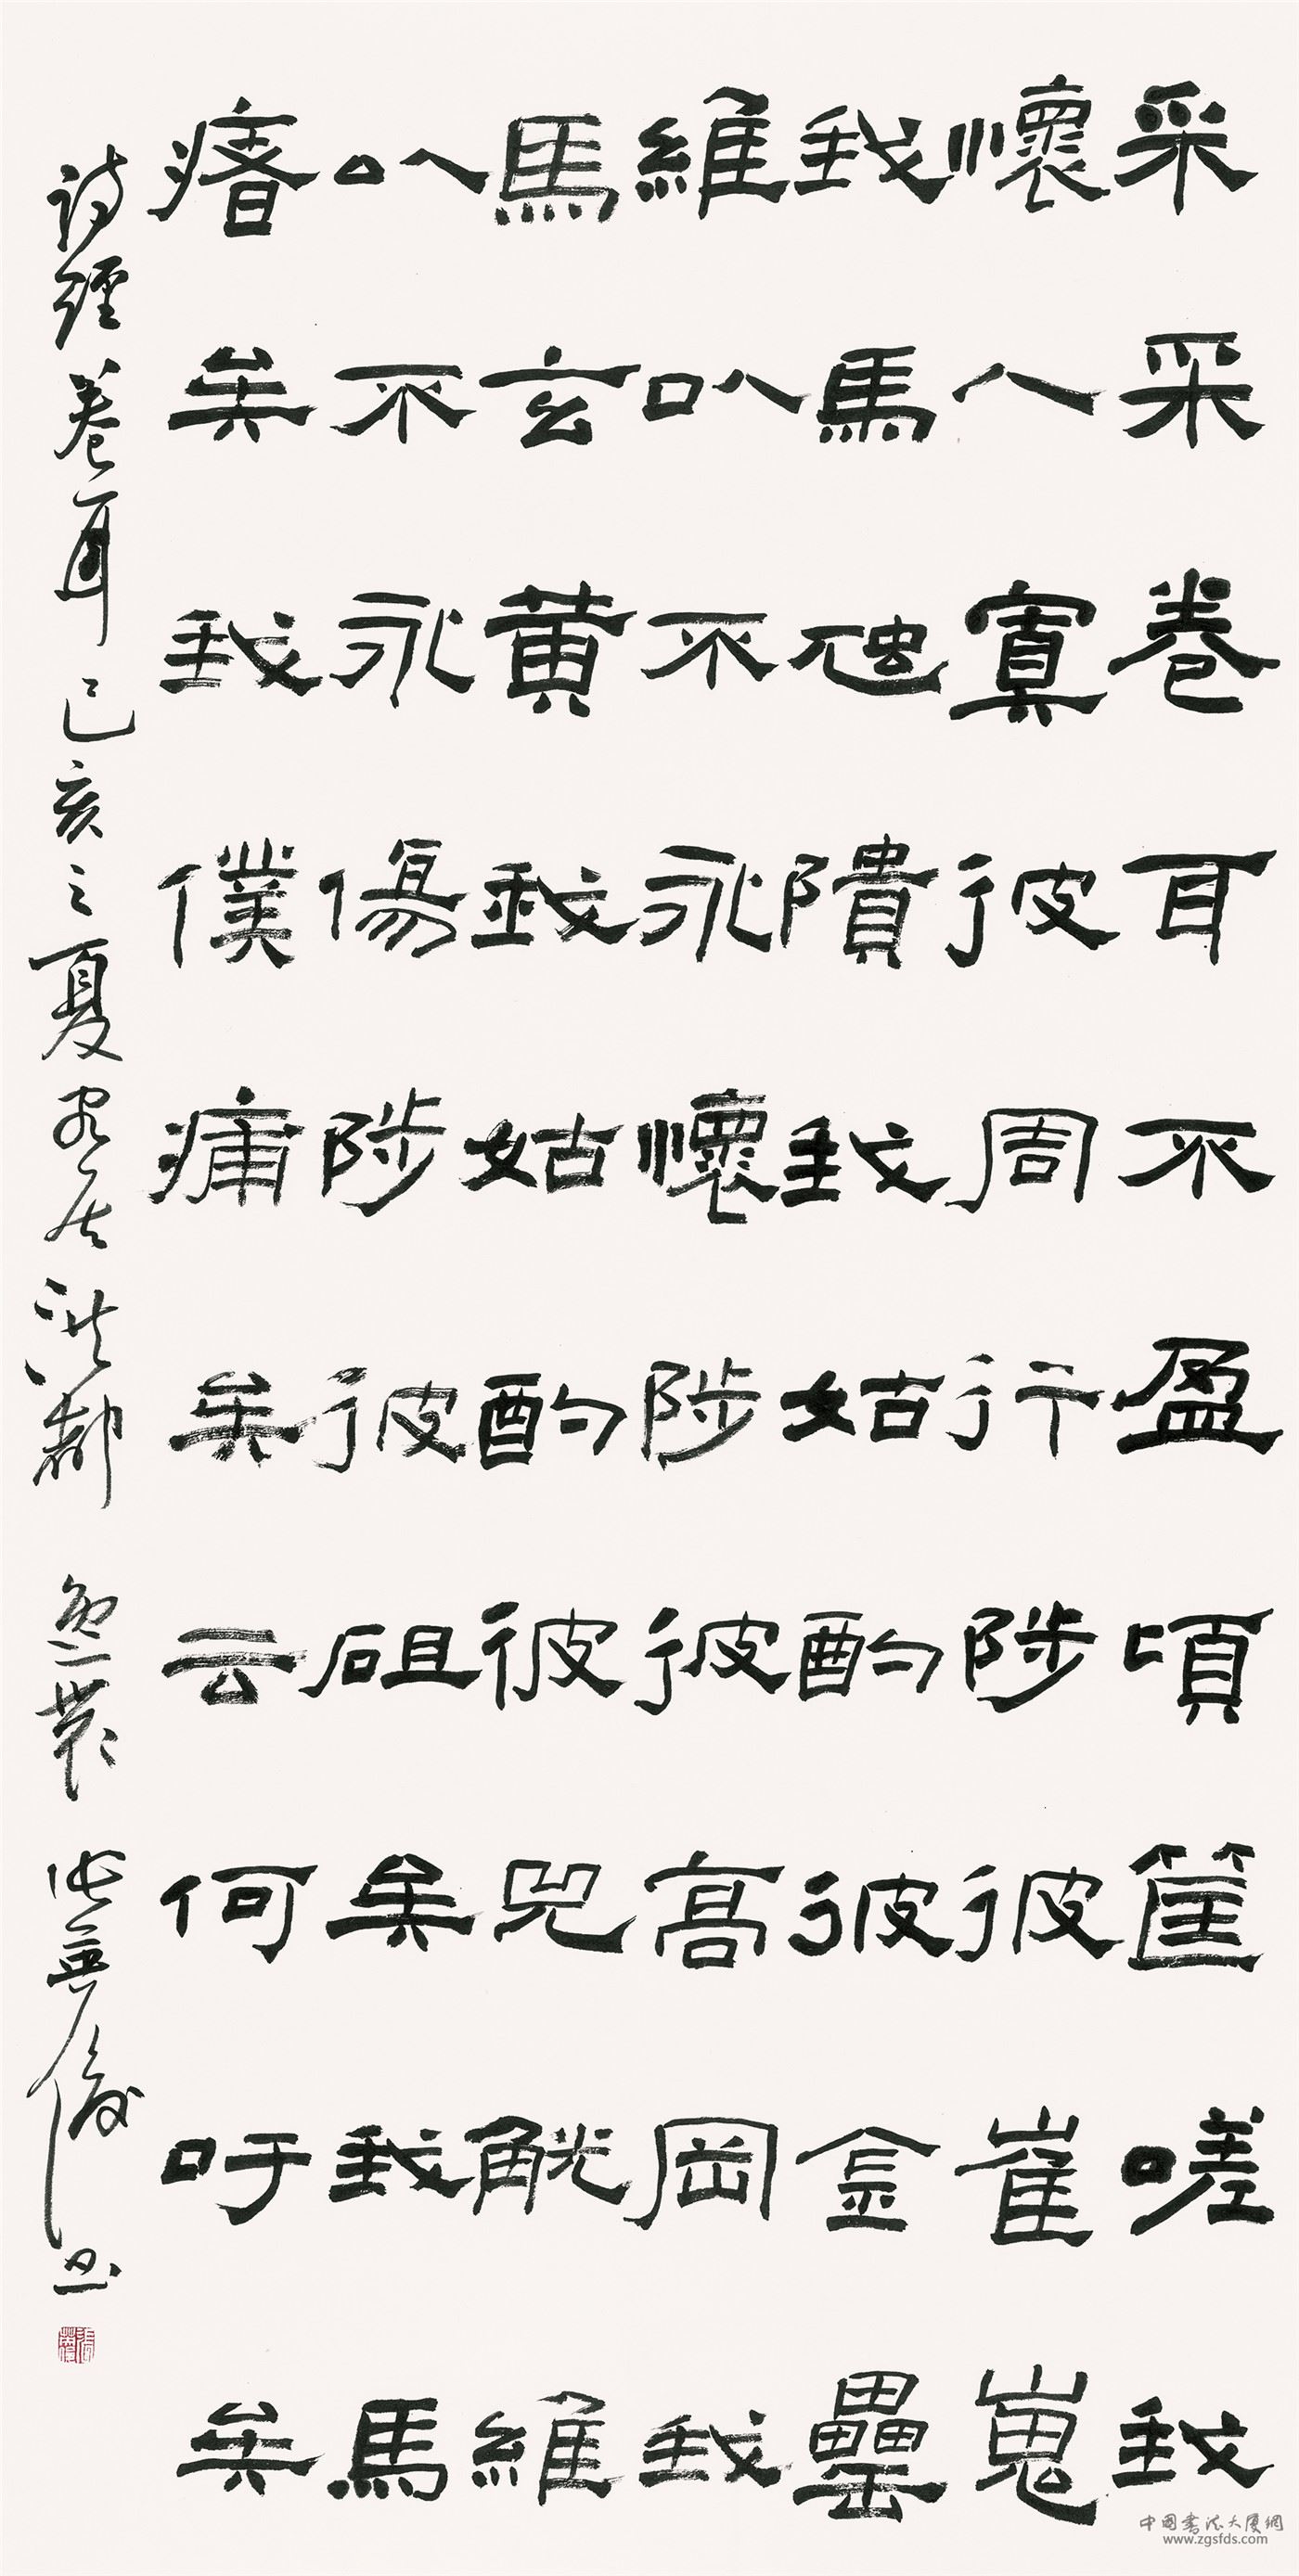 采采卷耳不盈頃筐嗟我
懷人寘彼周行陟彼崔嵬
我馬虺隤我姑酌彼金罍
維以不永懷陟彼高岡我
馬玄黃我姑酌彼兕觥維
以不永傷陟彼砠矣我馬
瘏矣我僕痡矣云何吁矣
詩經卷耳己亥之夏客居洪都 書
中国書法大厦網
www.zgsfds.com